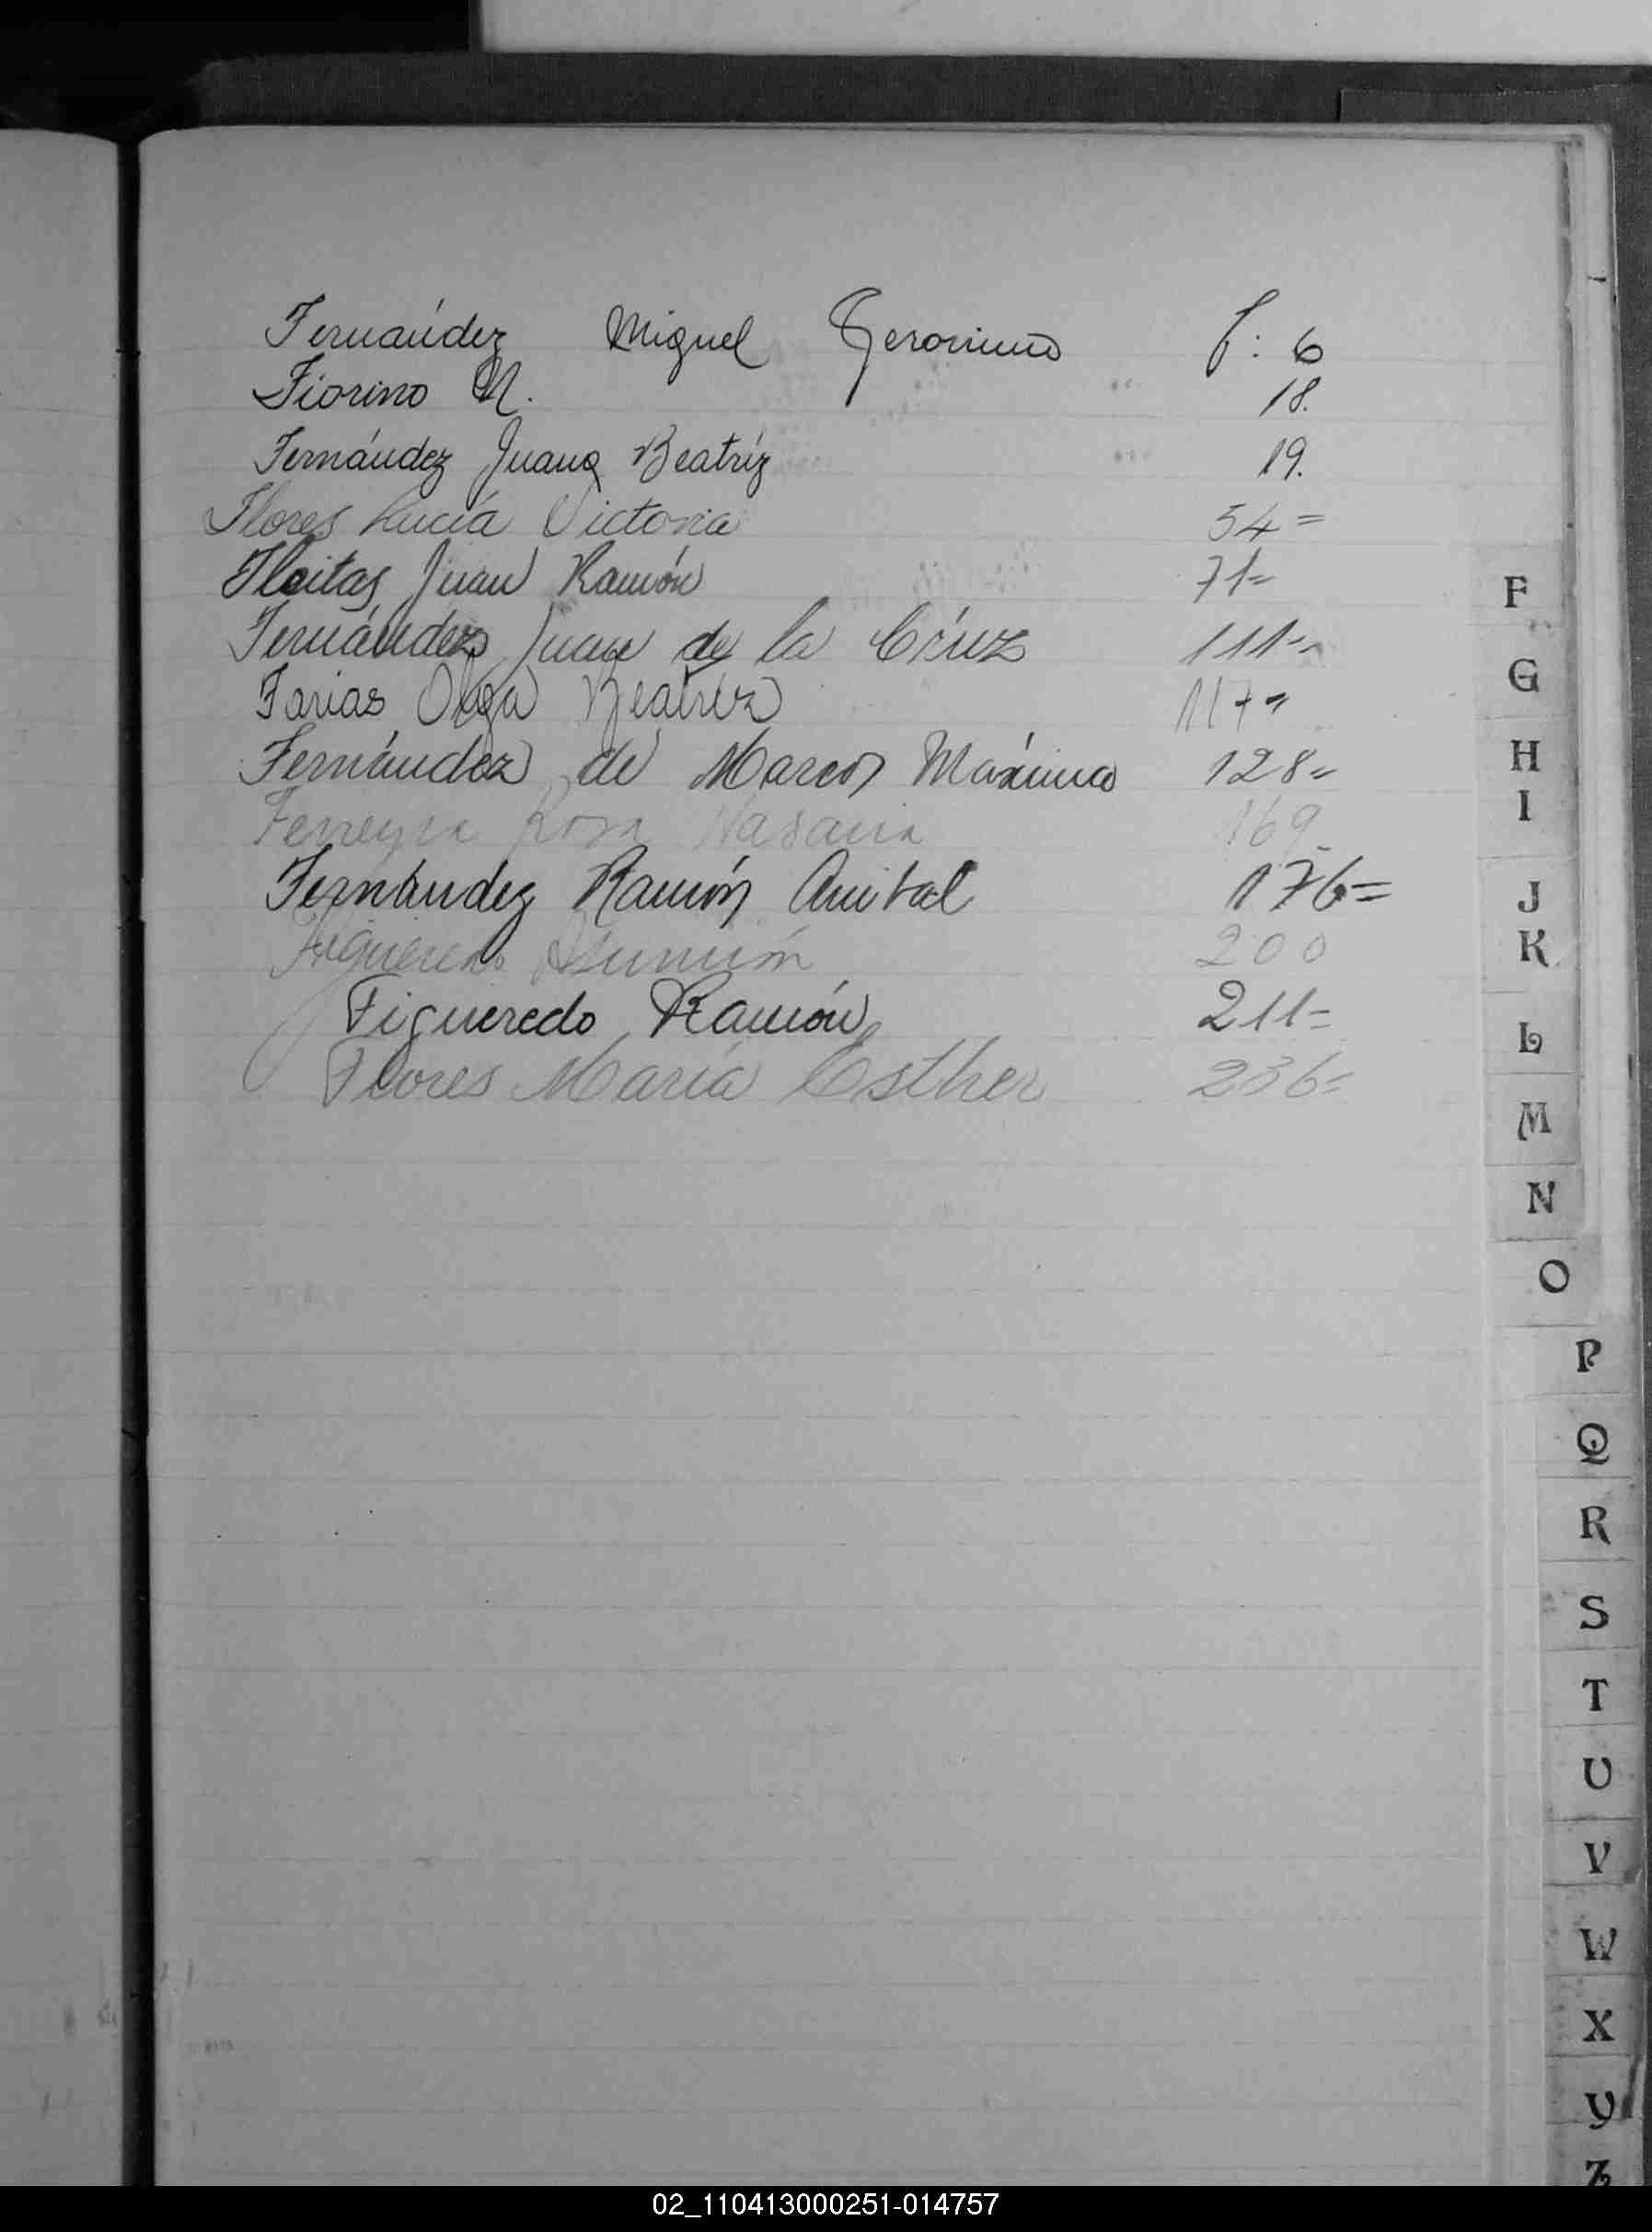 Fernández Miguel Geronimo f: 6
Fiorino M. 18.
Fernández Juana Beatríz 19.
Flores Lucía Victoria 54=
Fleitas Juan Ramón 71=
Fernández Juan de la Cruz 111=
Farias Olga Beatríz 117=
Fernández de Marcos Máxima 128=
Ferreyra Rosa 169
Fernández Ramón Anibal 176=
Figueredo Asunción 200
Figueredo Ramón 211=
Flores María Esther 236=
F
G
H
I
J
K
L
M
N
O
P
Q
R
S
T
U
V
W
X
Y
Z
02_110413000251-014757